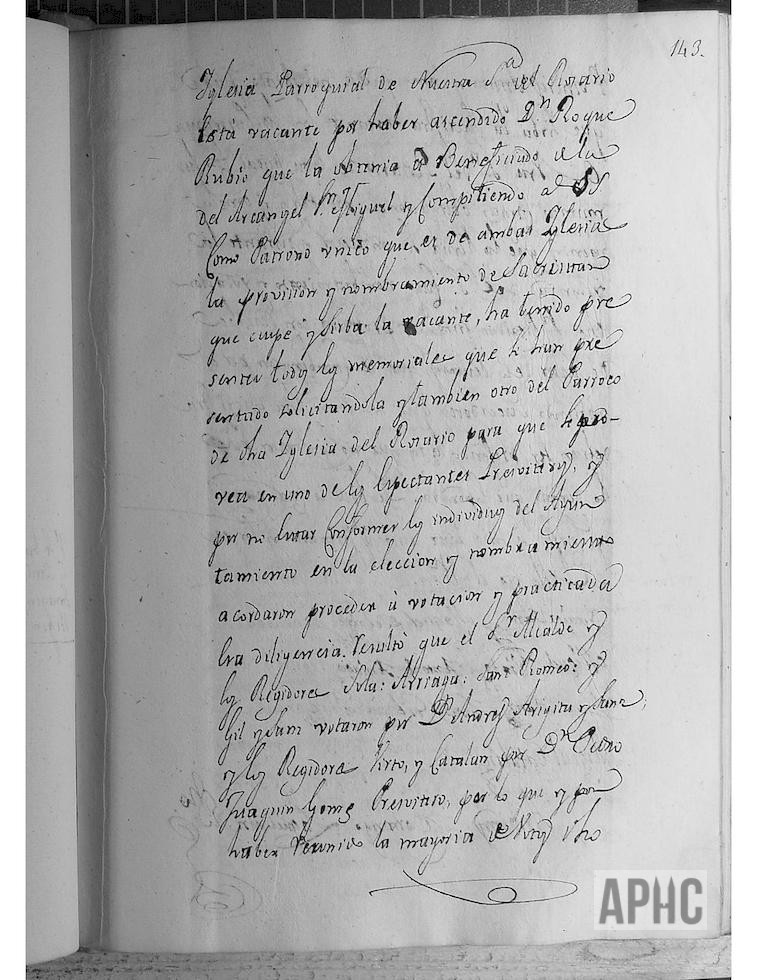 143.
Iglesia Parroquial de Nuestra Sª del Rosario
Está vacante por haber ascendido Dn Roque
Rubio que la obtenia á Beneficiado de la
del Arcangel Sn Miguel y Compitiendo al SS
Como Patrono unico que es de ambas Iglesias
la provision y nombramiento de Sacristan
que ocupe y sirba la vacante, ha tenido pre
sentes todos los memoriales que se han pre
sentado solicitandola y tambien otro del Parroco
de dha Iglesia del Rosario para que se pro-
vea en uno de los Espectantes Presviteros, y
por no Estar Conformes los individuos del Ayun
tamiento en la eleccion y nombramiento
acordaron proceder á votacion y practicada
Esta diligencia. Resultó que el Sr Alcalde y
los Regidores Arriaga: Sanz Romeo: y
Gil y Sanz votaron por Dn Andres Arigita y Sanz;
y los Regidores y Catalan por Dn Pedro
Juaquin Gomez Presvitero, por lo que y por
haber Reunido la mayoria de Votos dho
APHC